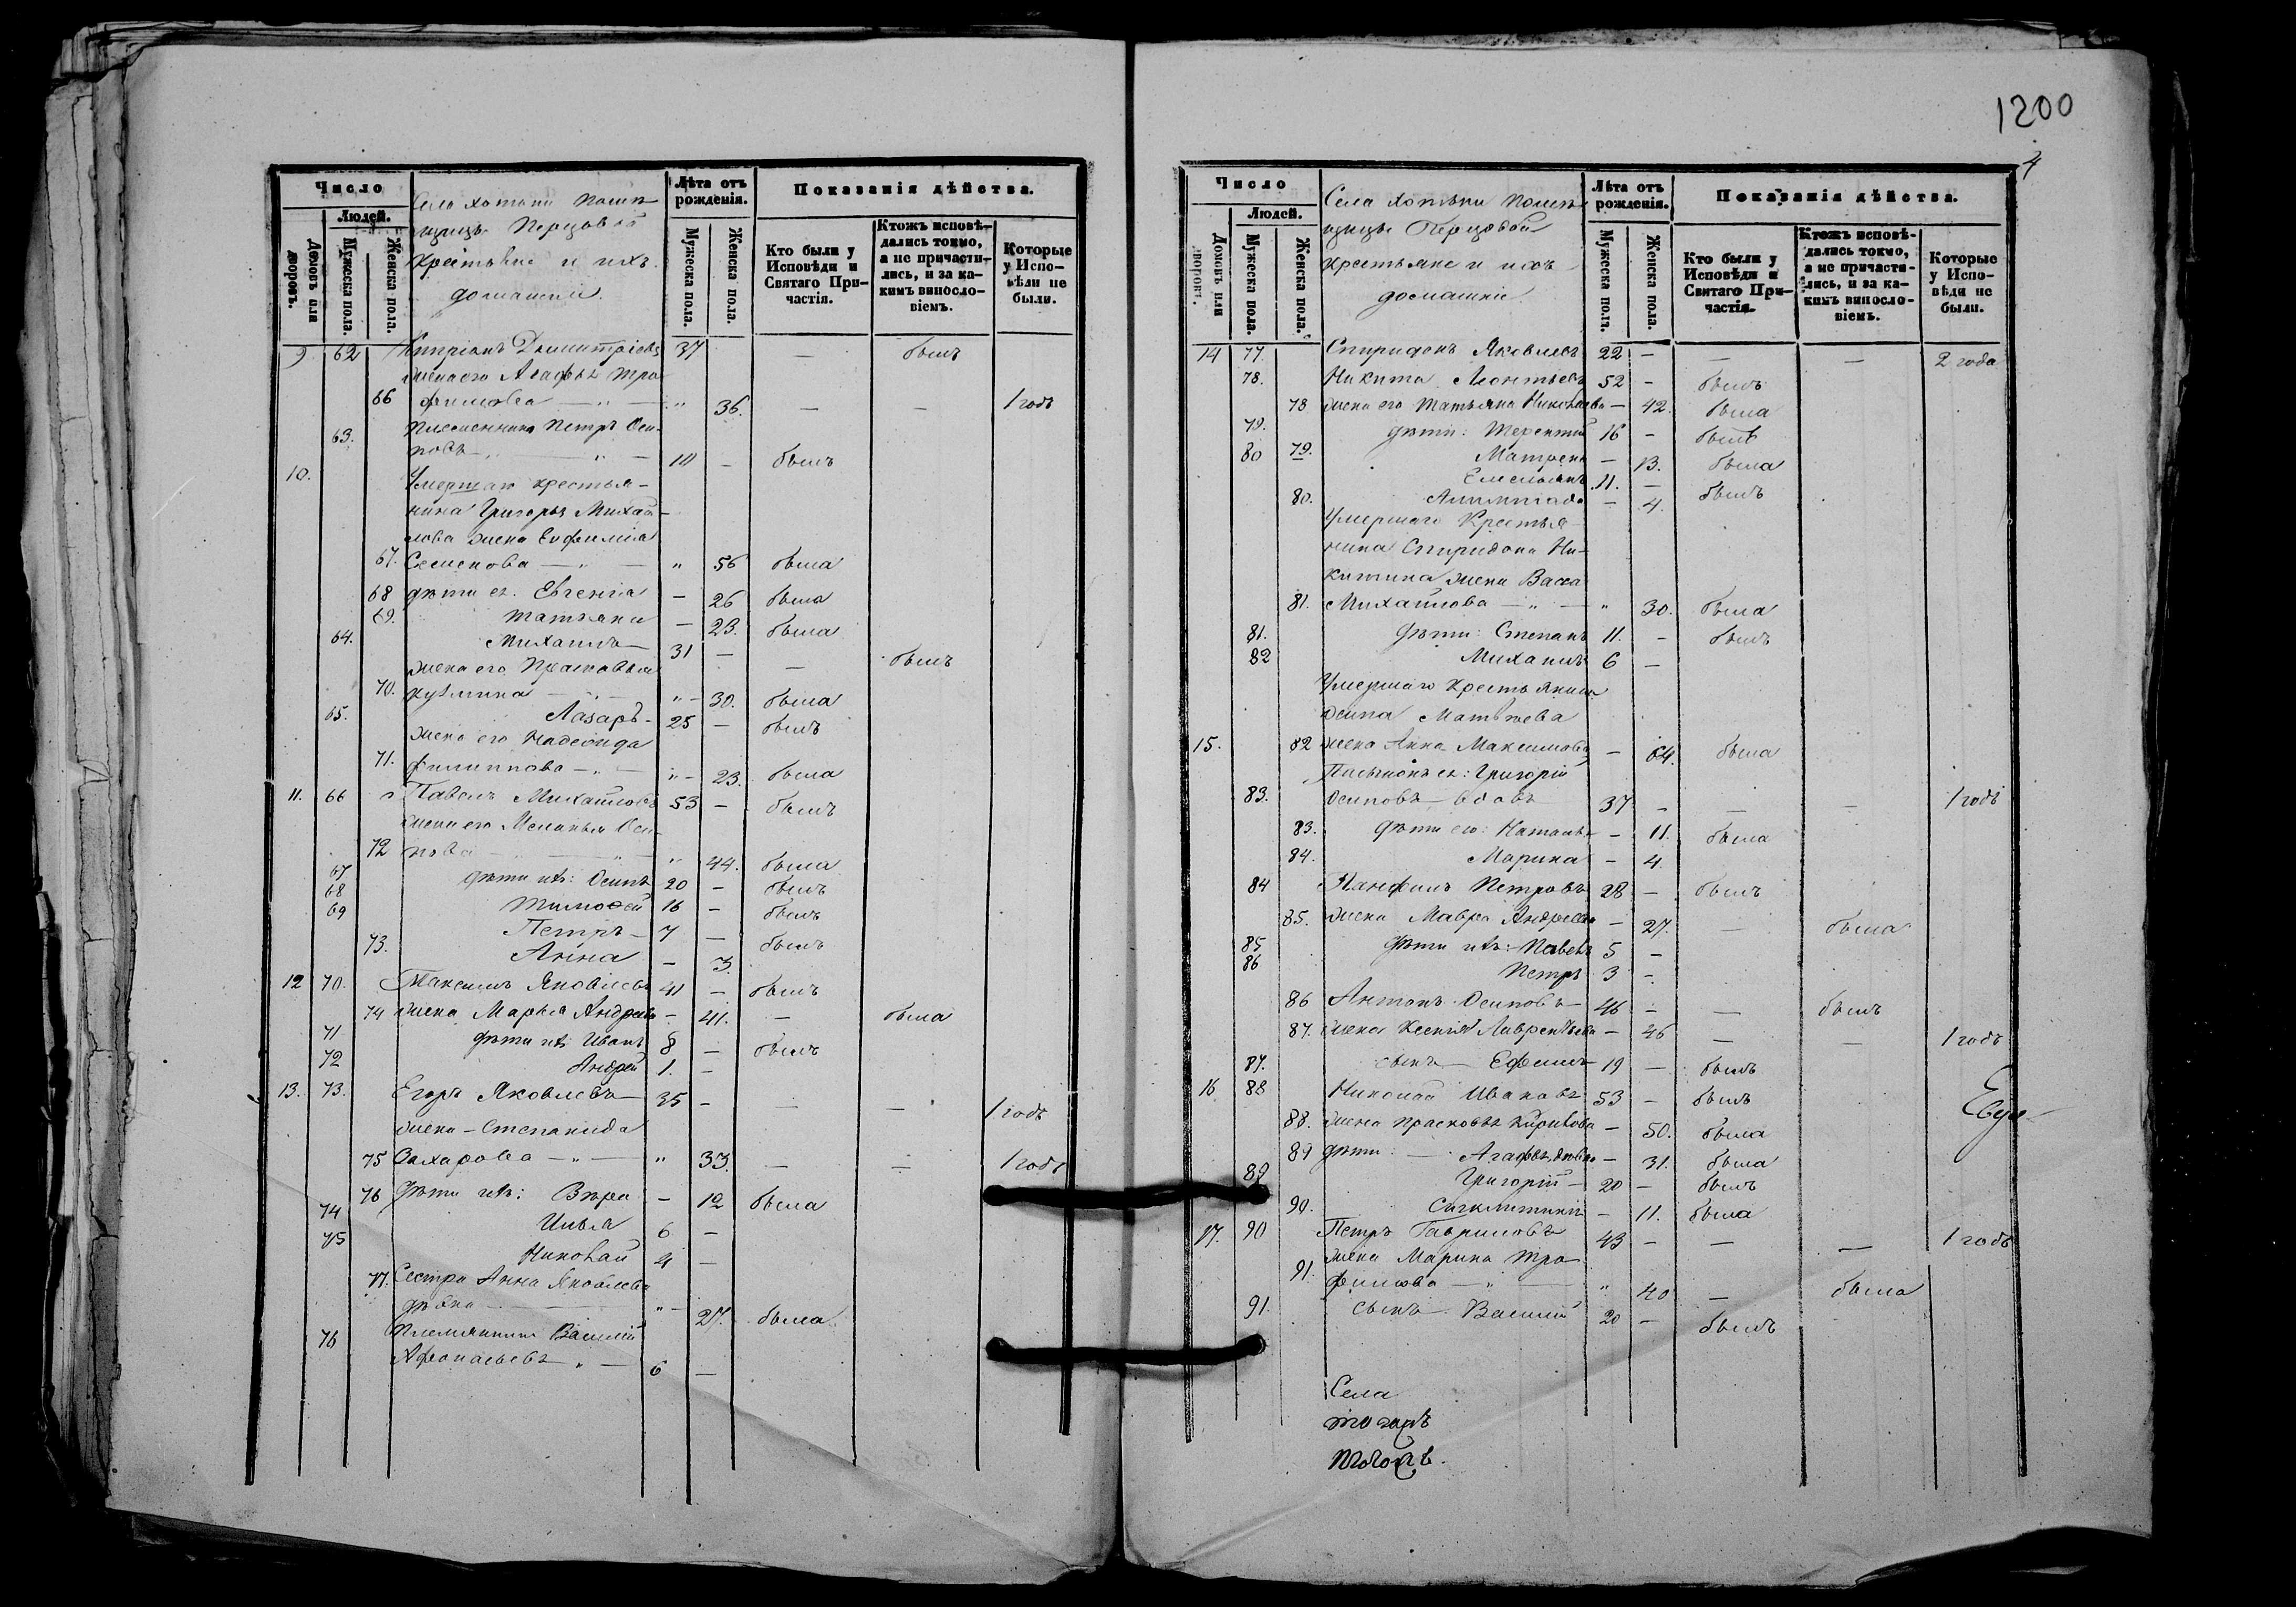 1200
4
Число
Людей.
Домовъ или дворовъ.
Мужеска пола.
Женска пола.
Лѣта отъ рожденія.
Мужеска пола.
Женска пола.
Показанія дѣйства.
Кто были у Исповѣди и Святаго Причастія.
Ктожъ исповѣдались токмо, а не причастились, и за какимъ винословіемъ.
Которые у Исповѣди не были.
Села Хотыни Помѣ-
щицы Перцовой
Крестьяне и ихъ
домашніе.
9 62 Кипріанъ Димитріевъ 37 — былъ
жена его Агафья Тро-
66 фимова — " — " 36. — — 1 годъ
63. Племянникъ Петръ Оси-
повъ — " — 14 — былъ
10. Умершаго крестья-
нина Григорья Михай-
лова жена Евфимія
67. Семенова — " — " 56 была
68 дѣти ея. Евгенія — 26 была
69. Татьяна — 23. была
64. Михаилъ — 31 — — былъ
жена его Прасковья
70. Кузмина — " — " — 30. была
65. Лазарь — 25 — былъ
жена его Надежда
71. Филиппова — " — " — 23. была
11. 66 Павелъ Михайловъ 53 — былъ
жена его Меланья Оси-
72 пова — " — " 44. была
67 дѣти ихъ: Осипъ 20 — былъ
68 Тимофей 16 — былъ
69 Петръ — 7 — былъ
73. Анна — 3.
12 70. Максимъ Яковлевъ 41 — былъ
74 жена Марья Андреева — 41. — была
71 дѣти ихъ Иванъ 8 — былъ
72 Андрей 1. —
13. 73. Егоръ Яковлевъ — 35 — — — 1 годъ
жена — Степанида
75 Захарова — " — " 33. — — 1 годъ
76 дѣти ихъ: Вѣра — 12 была
74 Илья 6 —
75 Николай 4 —
77. Сестра Анна Яковлева
дѣвка — " — 27. была
76 Племянникъ Василій
Афонасьевъ " — 6 —
Число
Людей.
Домовъ или дворовъ.
Мужеска пола.
Женска пола.
Лѣта отъ рожденія.
Мужеска пола.
Женска пола.
Показанія дѣйства.
Кто были у Исповѣди и Святаго Причастія.
Ктожъ исповѣдались токмо, а не причастились, и за какимъ винословіемъ.
Которые у Исповѣди не были.
Села Хотыни Помѣ-
щицы Перцовой
Крестьяне и ихъ
домашніе.
14 77. Спиридонъ Яковлевъ 22 — — — 2 года
78. Никита Леонтьевъ 52 — былъ
78 жена его Татьяна Николаева — 42. была
79. дѣти: Терентій 16 — былъ
79. Матрена — 13. была
80 Емельянъ 11. — былъ
80. Алимпіада — 4.
Умершаго Крестья-
нина Спиридона Ни-
китина жена Васса
81. Михайлова — " — " 30. была
81. дѣти: Степанъ 11. — былъ
82 Михаилъ 6 —
Умершаго Крестьянина
Осипа Матвѣева
15. 82 жена Анна Максимова — 64. была
Пасынокъ ея: Григорій
83. Осиповъ — вдовъ 37 — — — 1 годъ
83. дѣти его: Наталья — 11. была
84. Марина — 4.
84 Панфилъ Петровъ 28 — былъ
85. жена Мавра Андреева — 27. — была
85 дѣти ихъ: Павелъ 5 —
86 Петръ 3 —
86 Антонъ Осиповъ — 46 — — былъ
87. жена Ксенія Лаврентьева — 46 — — 1 годъ
87. сынъ — Ефимъ 19 — былъ
16 88 Николай Ивановъ 53 — былъ
88. жена Прасковья Кирилова — 50. была
89 дѣти: — Агафья, дѣвка — 31. была
89 Григорій — 20 — былъ
90. Сигклитикія — 11. была
17. 90 Петръ Гавриловъ 43 — — — 1 годъ
жена Марина Тро-
91. фимова — " — " 40 — была
91. сынъ — Василій 20 — былъ
Села